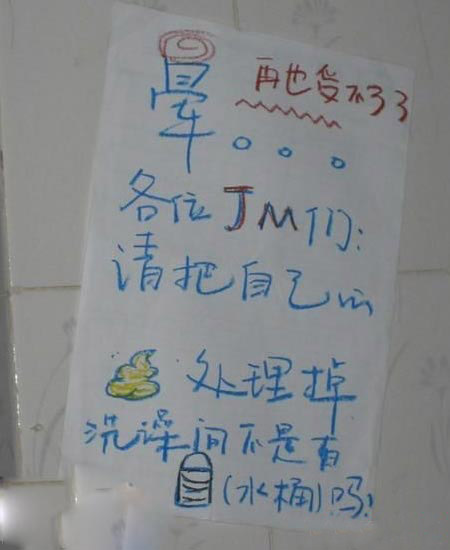 晕。。。
再也受不了了
各位JM们:
请把自己的
处理掉
洗澡间不是有
(水桶)吗!